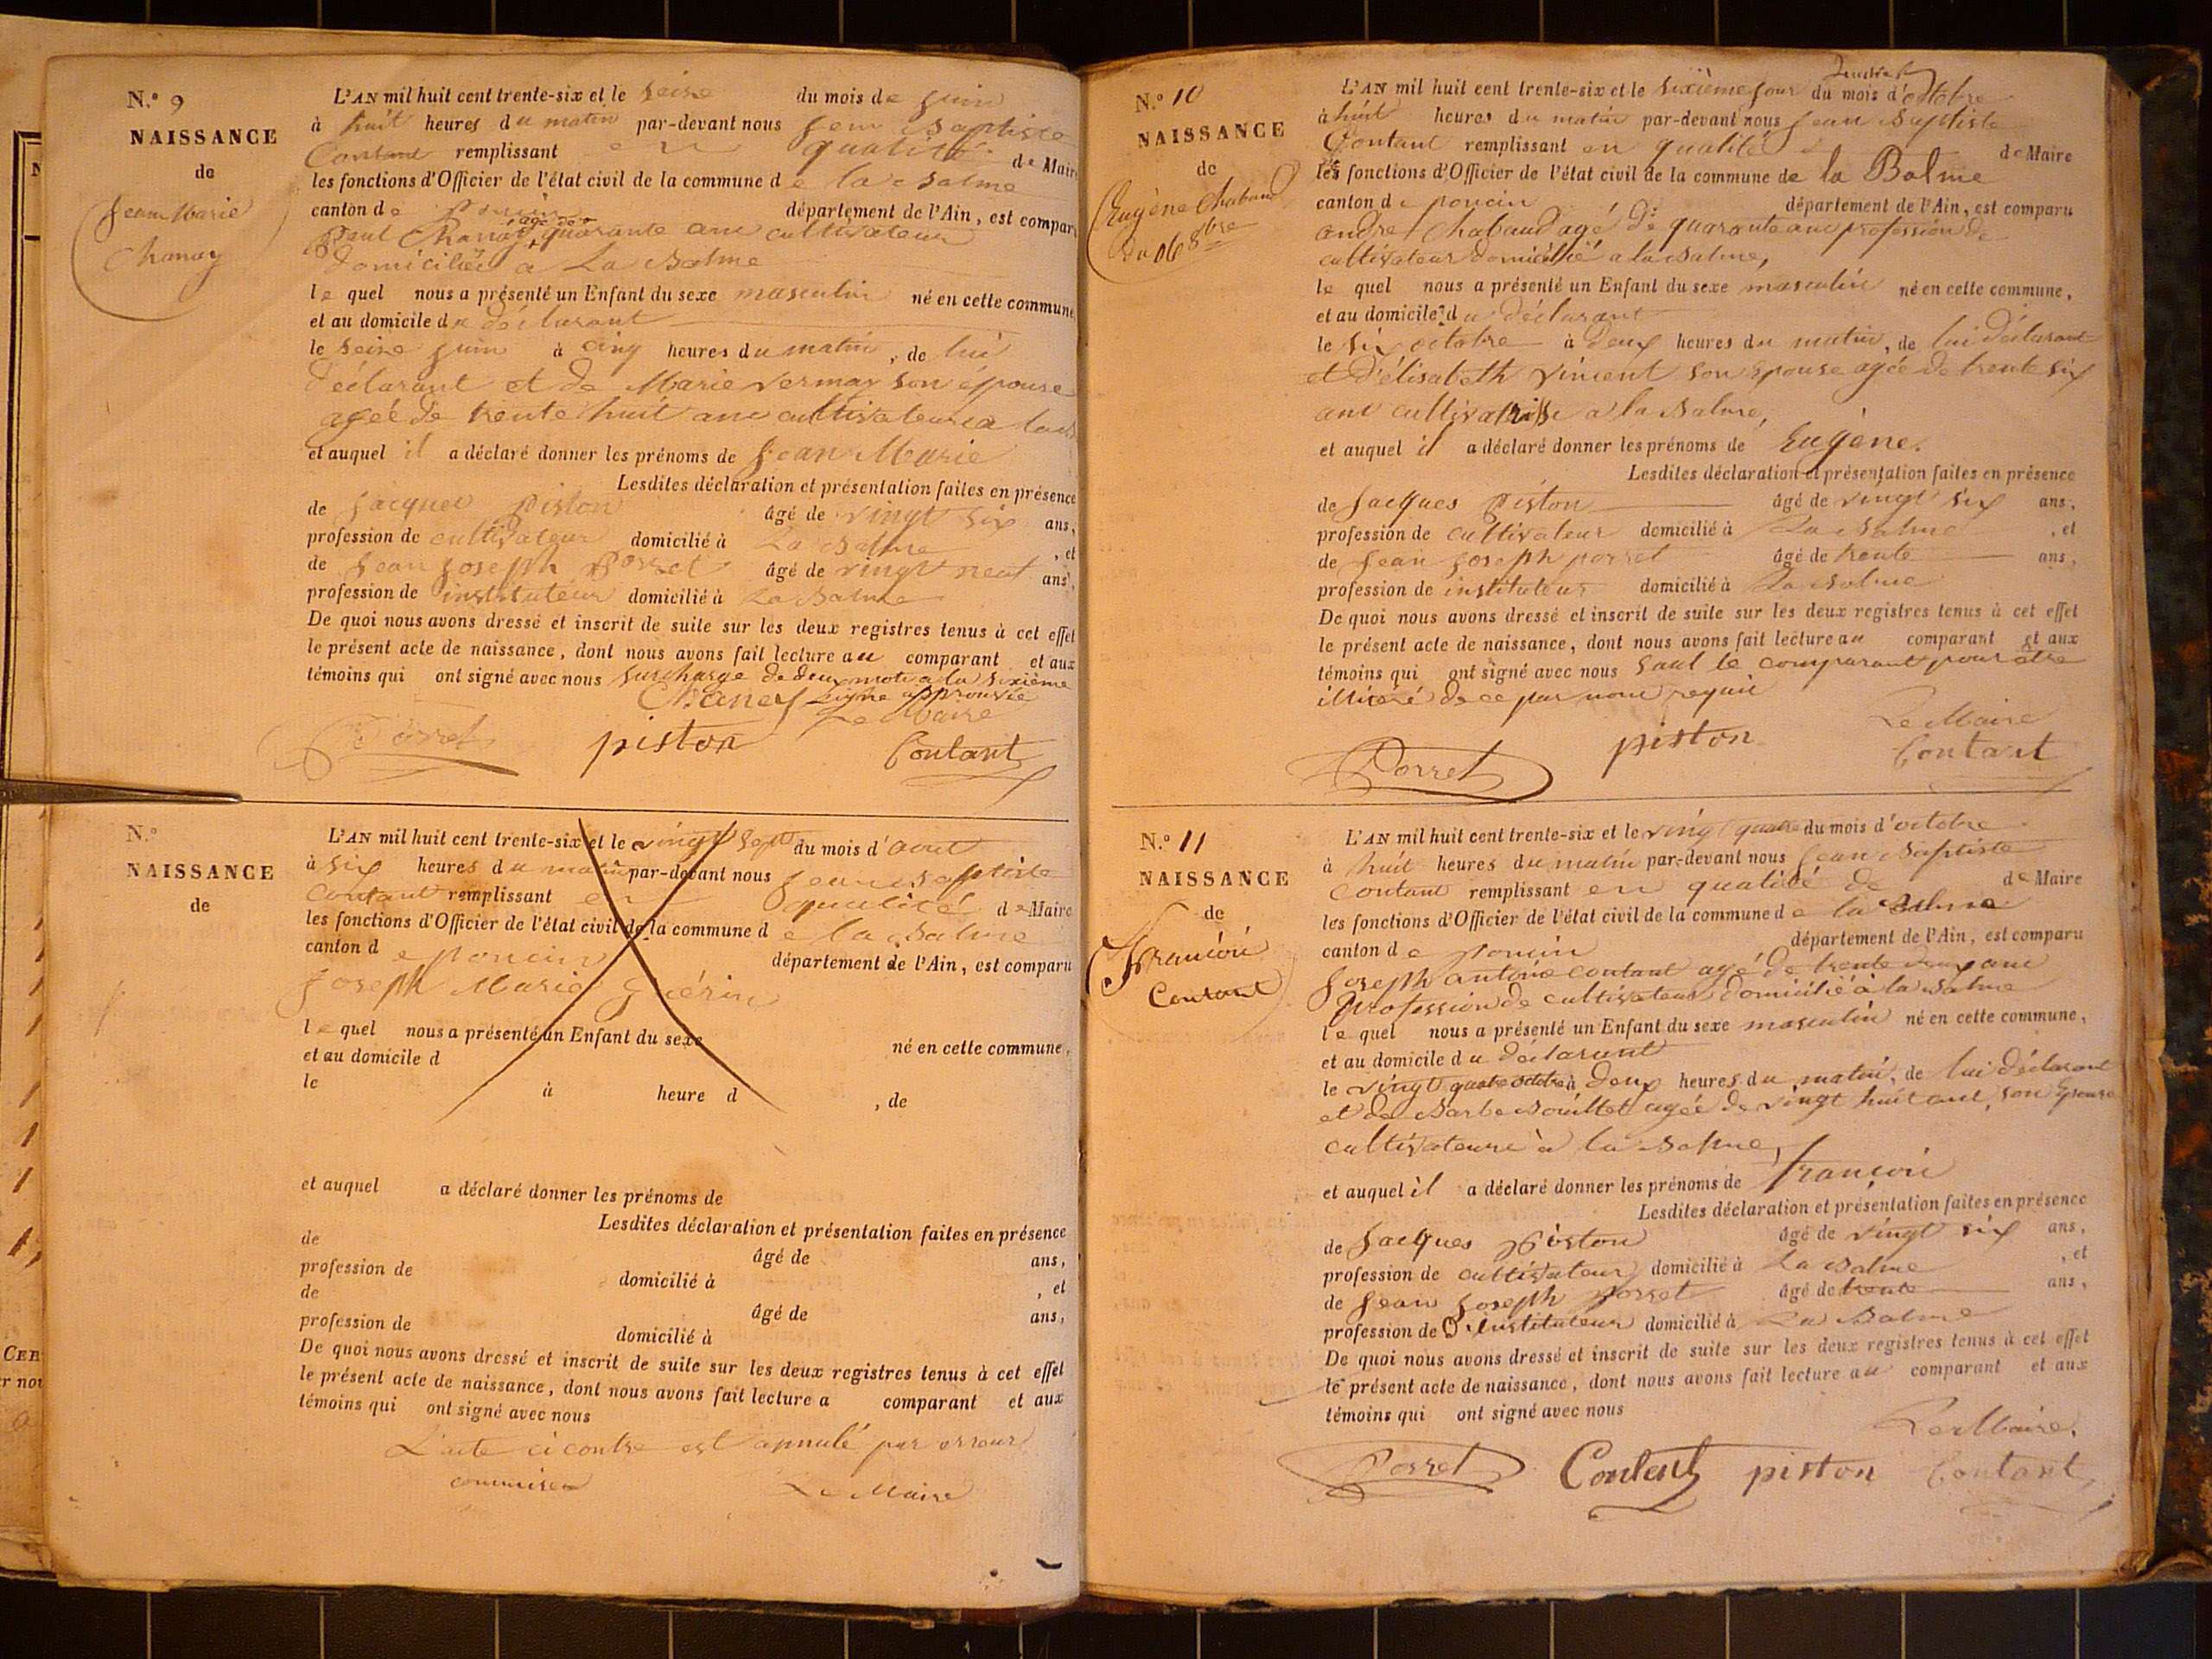 N.º 9
NAISSANCE
de
Jean Marie
Chanay
L'AN mil huit cent trente-six et le seize du mois de juin
à huit heures du matin par-devant nous Jean Baptiste
Contant remplissant en qualité de Maire
les fonctions d'Officier de l'état civil de la commune de la Balme
canton de Poncin département de l'Ain, est comparu
Paul Chanay agé de quarante ans cultivateur
domicilié a La Balme
le quel nous a présenté un Enfant du sexe masculin né en cette commune,
et au domicile du déclarant
le seize juin à cinq heures du matin, de lui
déclarant et de Marie vermay son épouse
agée de trente huit ans cultivateure a la
et auquel il a déclaré donner les prénoms de Jean Marie
Lesdites déclaration et présentation faites en présence
de Jacques piston âgé de vingt six ans,
profession de cultivateur domicilié à La Balme, et
de Jean Joseph Porret âgé de vingt neuf ans,
profession de instituteur domicilié à La Balme
De quoi nous avons dressé et inscrit de suite sur les deux registres tenus à cet effet
le présent acte de naissance, dont nous avons fait lecture au comparant et aux
témoins qui ont signé avec nous surcharge de deux mots a la sixième
Chanay ligne approuvée
Le Maire
Porret piston Contant
N.º
NAISSANCE
de
L'AN mil huit cent trente-six et le vingt sept du mois d'aout
à six heures du matin par-devant nous Jean Baptiste
Contant remplissant en qualité de Maire
les fonctions d'Officier de l'état civil de la commune de la Balme
canton de poncin département de l'Ain, est comparu
Joseph Marie Guérin
le quel nous a présenté un Enfant du sexe né en cette commune,
et au domicile d
le à heure d , de
et auquel a déclaré donner les prénoms de
Lesdites déclaration et présentation faites en présence
de âgé de ans,
profession de domicilié à , et
de âgé de ans,
profession de domicilié à
De quoi nous avons dressé et inscrit de suite sur les deux registres tenus à cet effet
le présent acte de naissance, dont nous avons fait lecture a comparant et aux
témoins qui ont signé avec nous
L'acte ci contre est annulé par erreur
commise
Le Maire
N.º 10
NAISSANCE
de
Eugène Chabaud
du 06 8bre
L'AN mil huit cent trente-six et le sixième jour du mois d'octobre
à huit heures du matin par-devant nous Jean Baptiste
Contant remplissant en qualité de Maire
les fonctions d'Officier de l'état civil de la commune de la Balme
canton de poncin département de l'Ain, est comparu
andré Chabaud agé de quarante ans profession de
cultivateur domicillié a la Balme,
le quel nous a présenté un Enfant du sexe masculin né en cette commune,
et au domicile du déclarant
le six octobre à deux heures du matin, de lui déclarant
et d'élisabeth vincent son épouse agée de trente six
ans cultivatrisse a la Balme,
et auquel il a déclaré donner les prénoms de Eugène.
Lesdites déclaration et présentation faites en présence
de Jacques piston âgé de vingt six ans,
profession de cultivateur domicilié à La Balme, et
de Jean Joseph porret âgé de trente ans,
profession de instituteur domicilié à La Balme
De quoi nous avons dressé et inscrit de suite sur les deux registres tenus à cet effet
le présent acte de naissance, dont nous avons fait lecture au comparant et aux
témoins qui ont signé avec nous sauf le comparant pour être
illitéré de ce par nous requis
Le Maire
Porret piston Contant
N.º 11
NAISSANCE
de
Francois
Contant
L'AN mil huit cent trente-six et le vingt quatre du mois d'octobre
à huit heures du matin par-devant nous Jean Baptiste
Contant remplissant en qualité de de Maire
les fonctions d'Officier de l'état civil de la commune de la Balme
canton de poncin département de l'Ain, est comparu
Joseph antoine contant agé de trente deux ans
profession de cultivateur domicilié a la Balme
le quel nous a présenté un Enfant du sexe masculin né en cette commune,
et au domicile du déclarant
le vingt quatre octobre à deux heures du matin, de lui déclarant
et de Barbe Bouillet agée de vingt huit ans, son épouse
cultivateure à la Balme,
et auquel il a déclaré donner les prénoms de françois
Lesdites déclaration et présentation faites en présence
de Jacques Piston âgé de vingt six ans,
profession de cultivateur domicilié à La Balme, et
de Jean Joseph Porret âgé de trente ans,
profession de instituteur domicilié à La Balme
De quoi nous avons dressé et inscrit de suite sur les deux registres tenus à cet effet
le présent acte de naissance, dont nous avons fait lecture au comparant et aux
témoins qui ont signé avec nous
Le Maire.
Porret Contant piston Contant